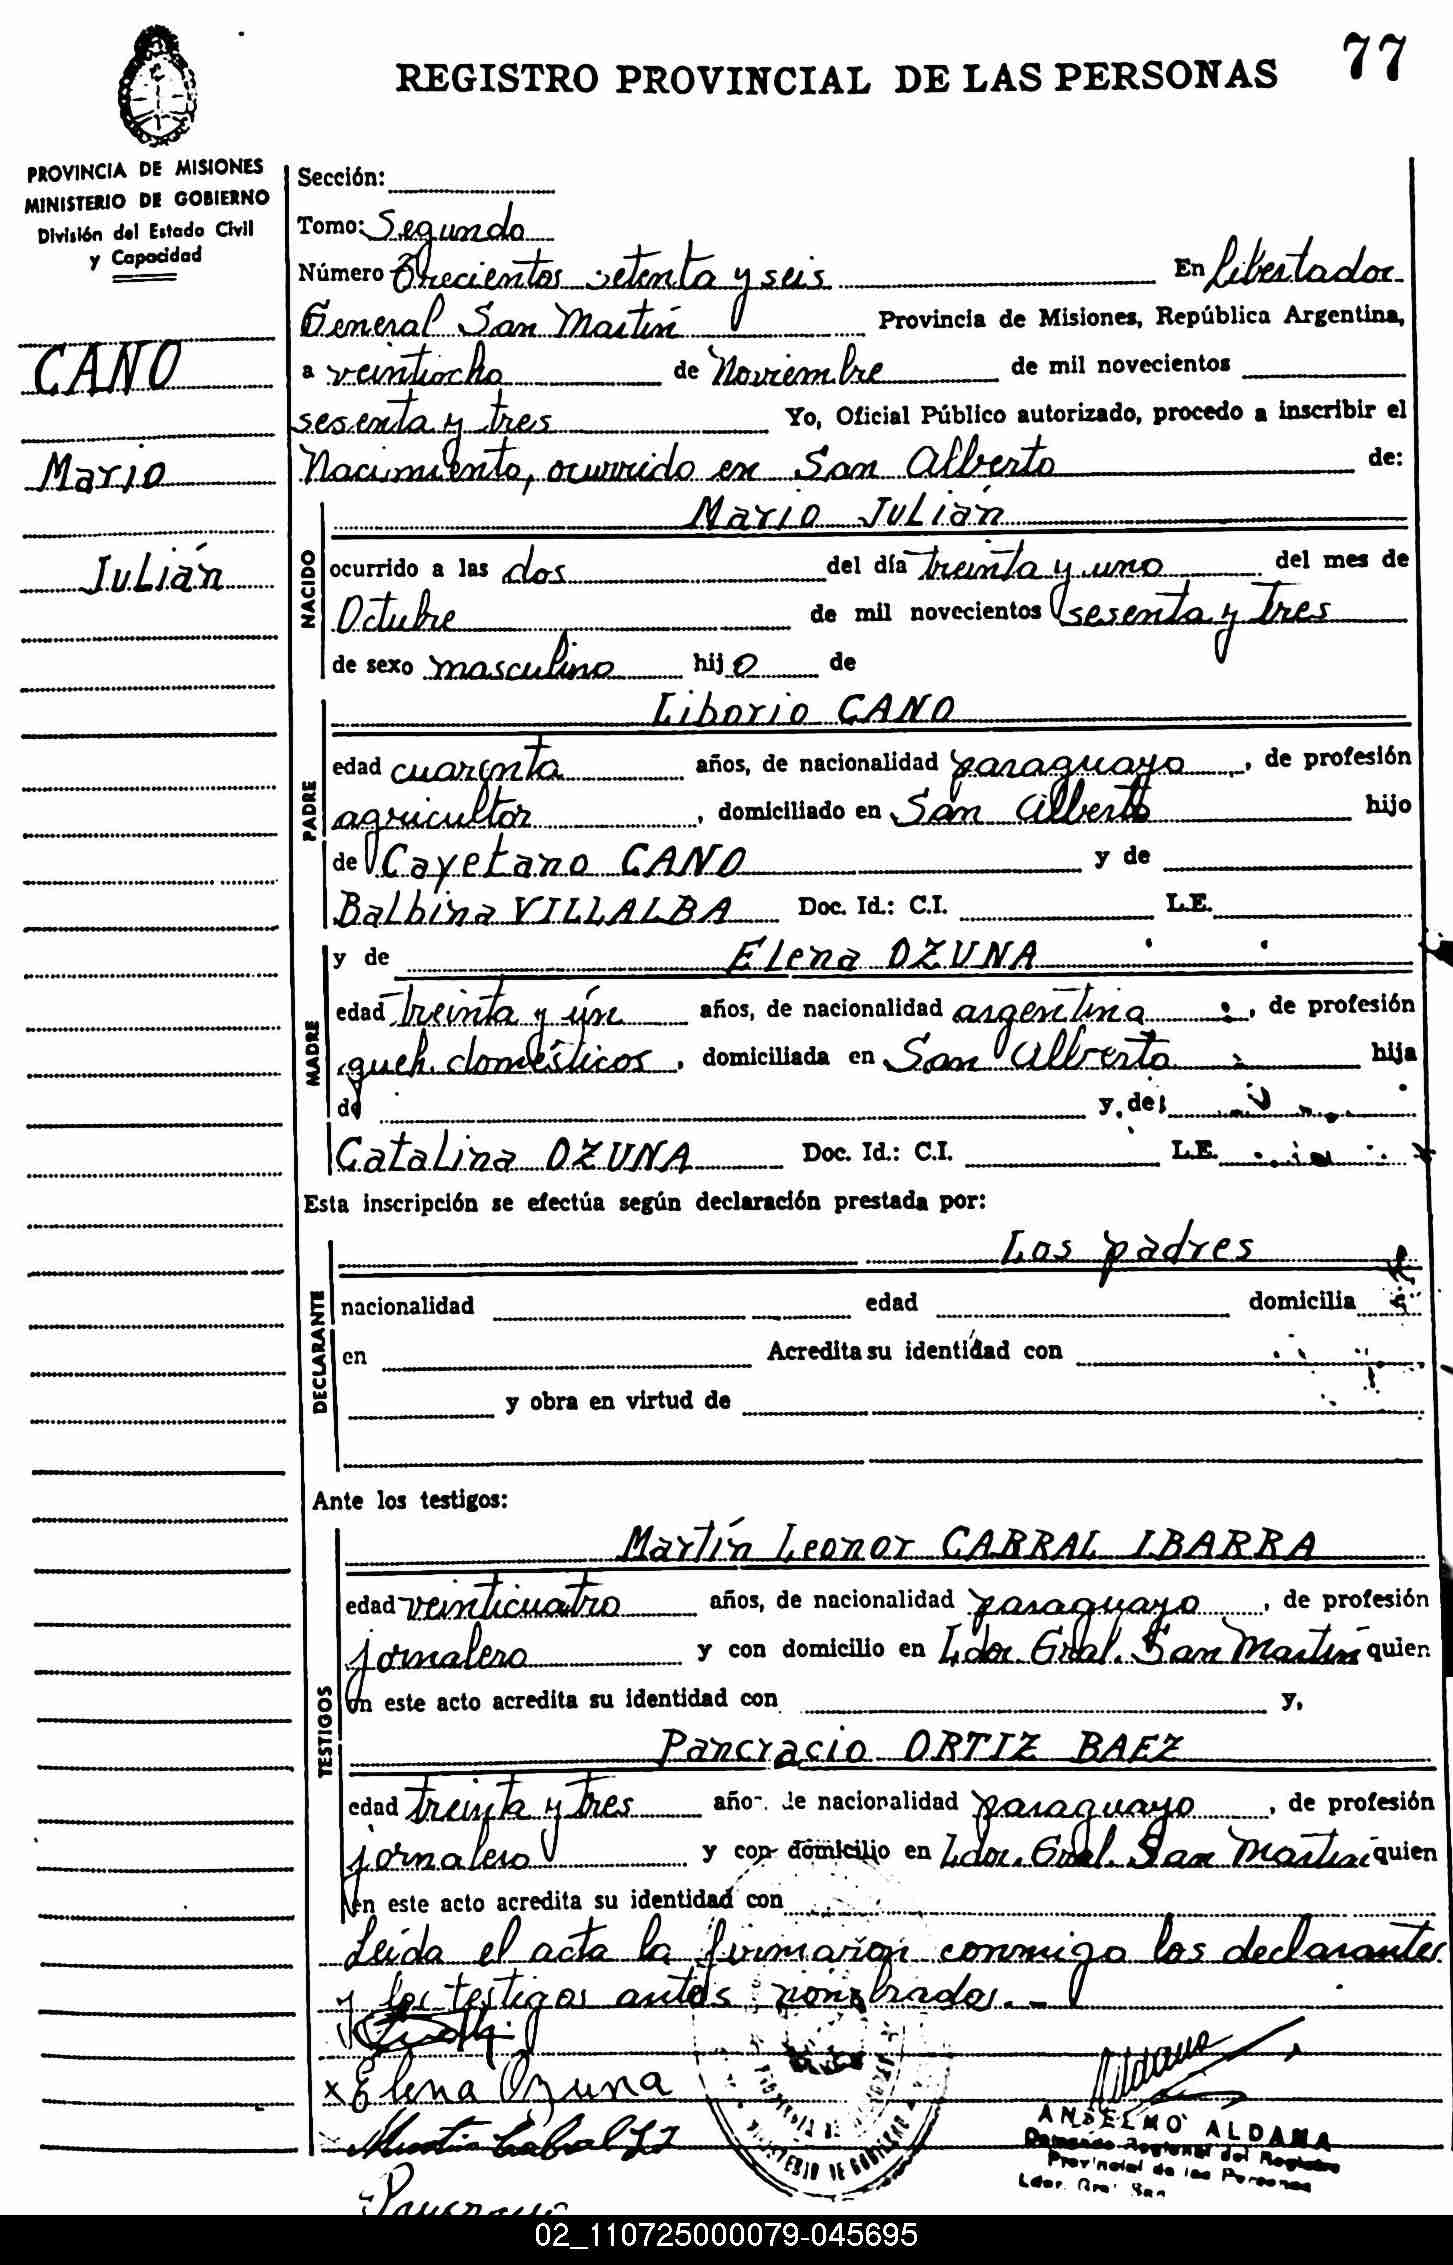 77
REGISTRO PROVINCIAL DE LAS PERSONAS
PROVINCIA DE MISIONES
MINISTERIO DE GOBIERNO
División del Estado Civil
y Capacidad
CANO
Mario
Julián
Sección:
Tomo: Segundo
Número Trecientos setenta y seis En Libertador
General San Martín Provincia de Misiones, República Argentina,
a veintiocho de Noviembre de mil novecientos
sesenta y tres Yo, Oficial Público autorizado, procedo a inscribir el
Nacimiento, ocurrido en San Alberto de:
NACIDO
Mario Julián
ocurrido a las dos del día treinta y uno del mes de
Octubre de mil novecientos sesenta y tres
de sexo masculino hijo de
PADRE
Liborio CANO
edad cuarenta años, de nacionalidad paraguayo, de profesión
agricultor, domiciliado en San Alberto hijo
de Cayetano CANO y de
Balbina VILLALBA Doc. Id.: C.I. L.E.
MADRE
y de Elena OZUNA
edad treinta y ún años, de nacionalidad argentina, de profesión
queh. domésticos, domiciliada en San Alberto hija
de y de
Catalina OZUNA Doc. Id.: C.I. L.E.
Esta inscripción se efectúa según declaración prestada por:
DECLARANTE
Los padres
nacionalidad edad domicilia
en Acredita su identidad con
y obra en virtud de
Ante los testigos:
TESTIGOS
Martín Leonor CABRAL IBARRA
edad veinticuatro años, de nacionalidad paraguayo, de profesión
jornalero y con domicilio en Ldor. Gral. San Martín quien
en este acto acredita su identidad con y,
Pancracio ORTIZ BAEZ
edad treinta y tres años de nacionalidad paraguayo, de profesión
jornalero y con domicilio en Ldor. Gral. San Martín quien
en este acto acredita su identidad con
Leída el acta la firmaron conmigo los declarantes
y los testigos antes nombrados.-
x Elena Ozuna
Martin Cabral
ANSELMO ALDANA
Regional del Registro
Provincial de las Personas
Ldor. Gral San
MINISTERIO DE GOBIERNO
02_110725000079-045695